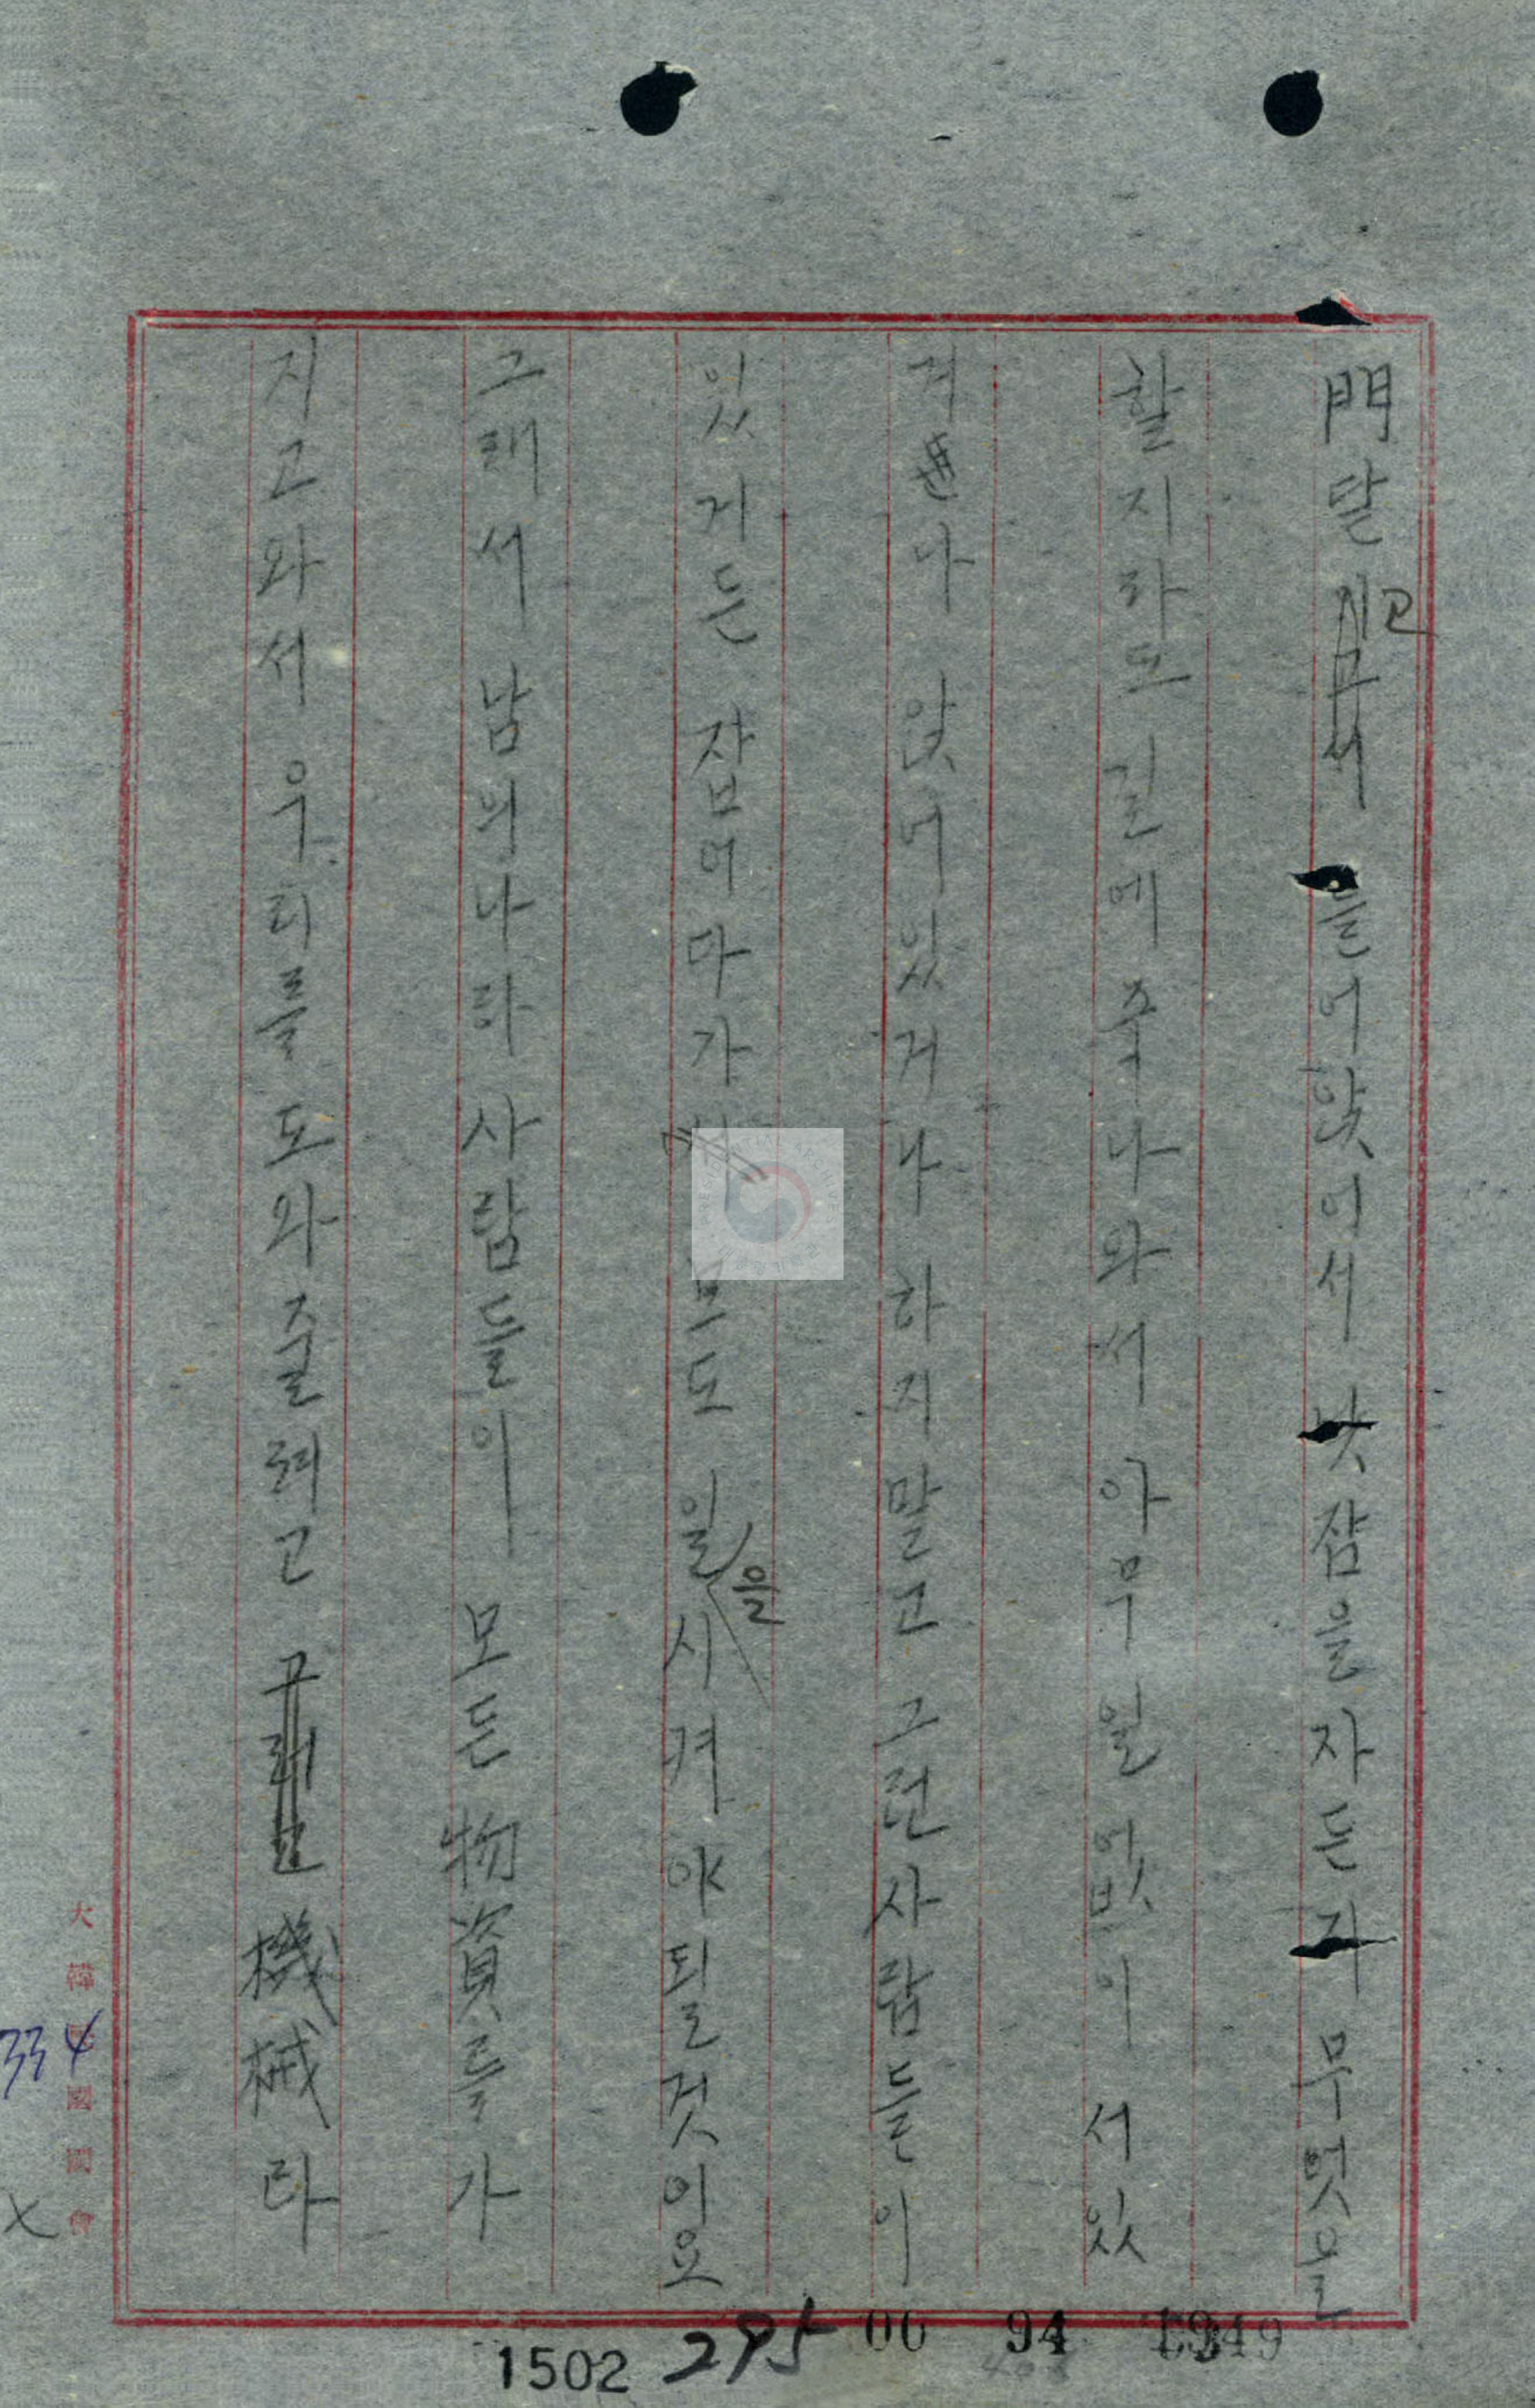 門닫고 들어앉어서 낮잠을자든지 무엇을
할지라도 길에 중나와서 아무 일 없이 서있
거나 앉어있거나 하지말고 그런사람들이
있거든 잡어다가 보도 일을시켜야될것이요
그래서 남의나라사람들이 모든物資를가
지고와서 우리를도와줄려고 機械라
大韓民國國會
334
1502
295
00 94 1949